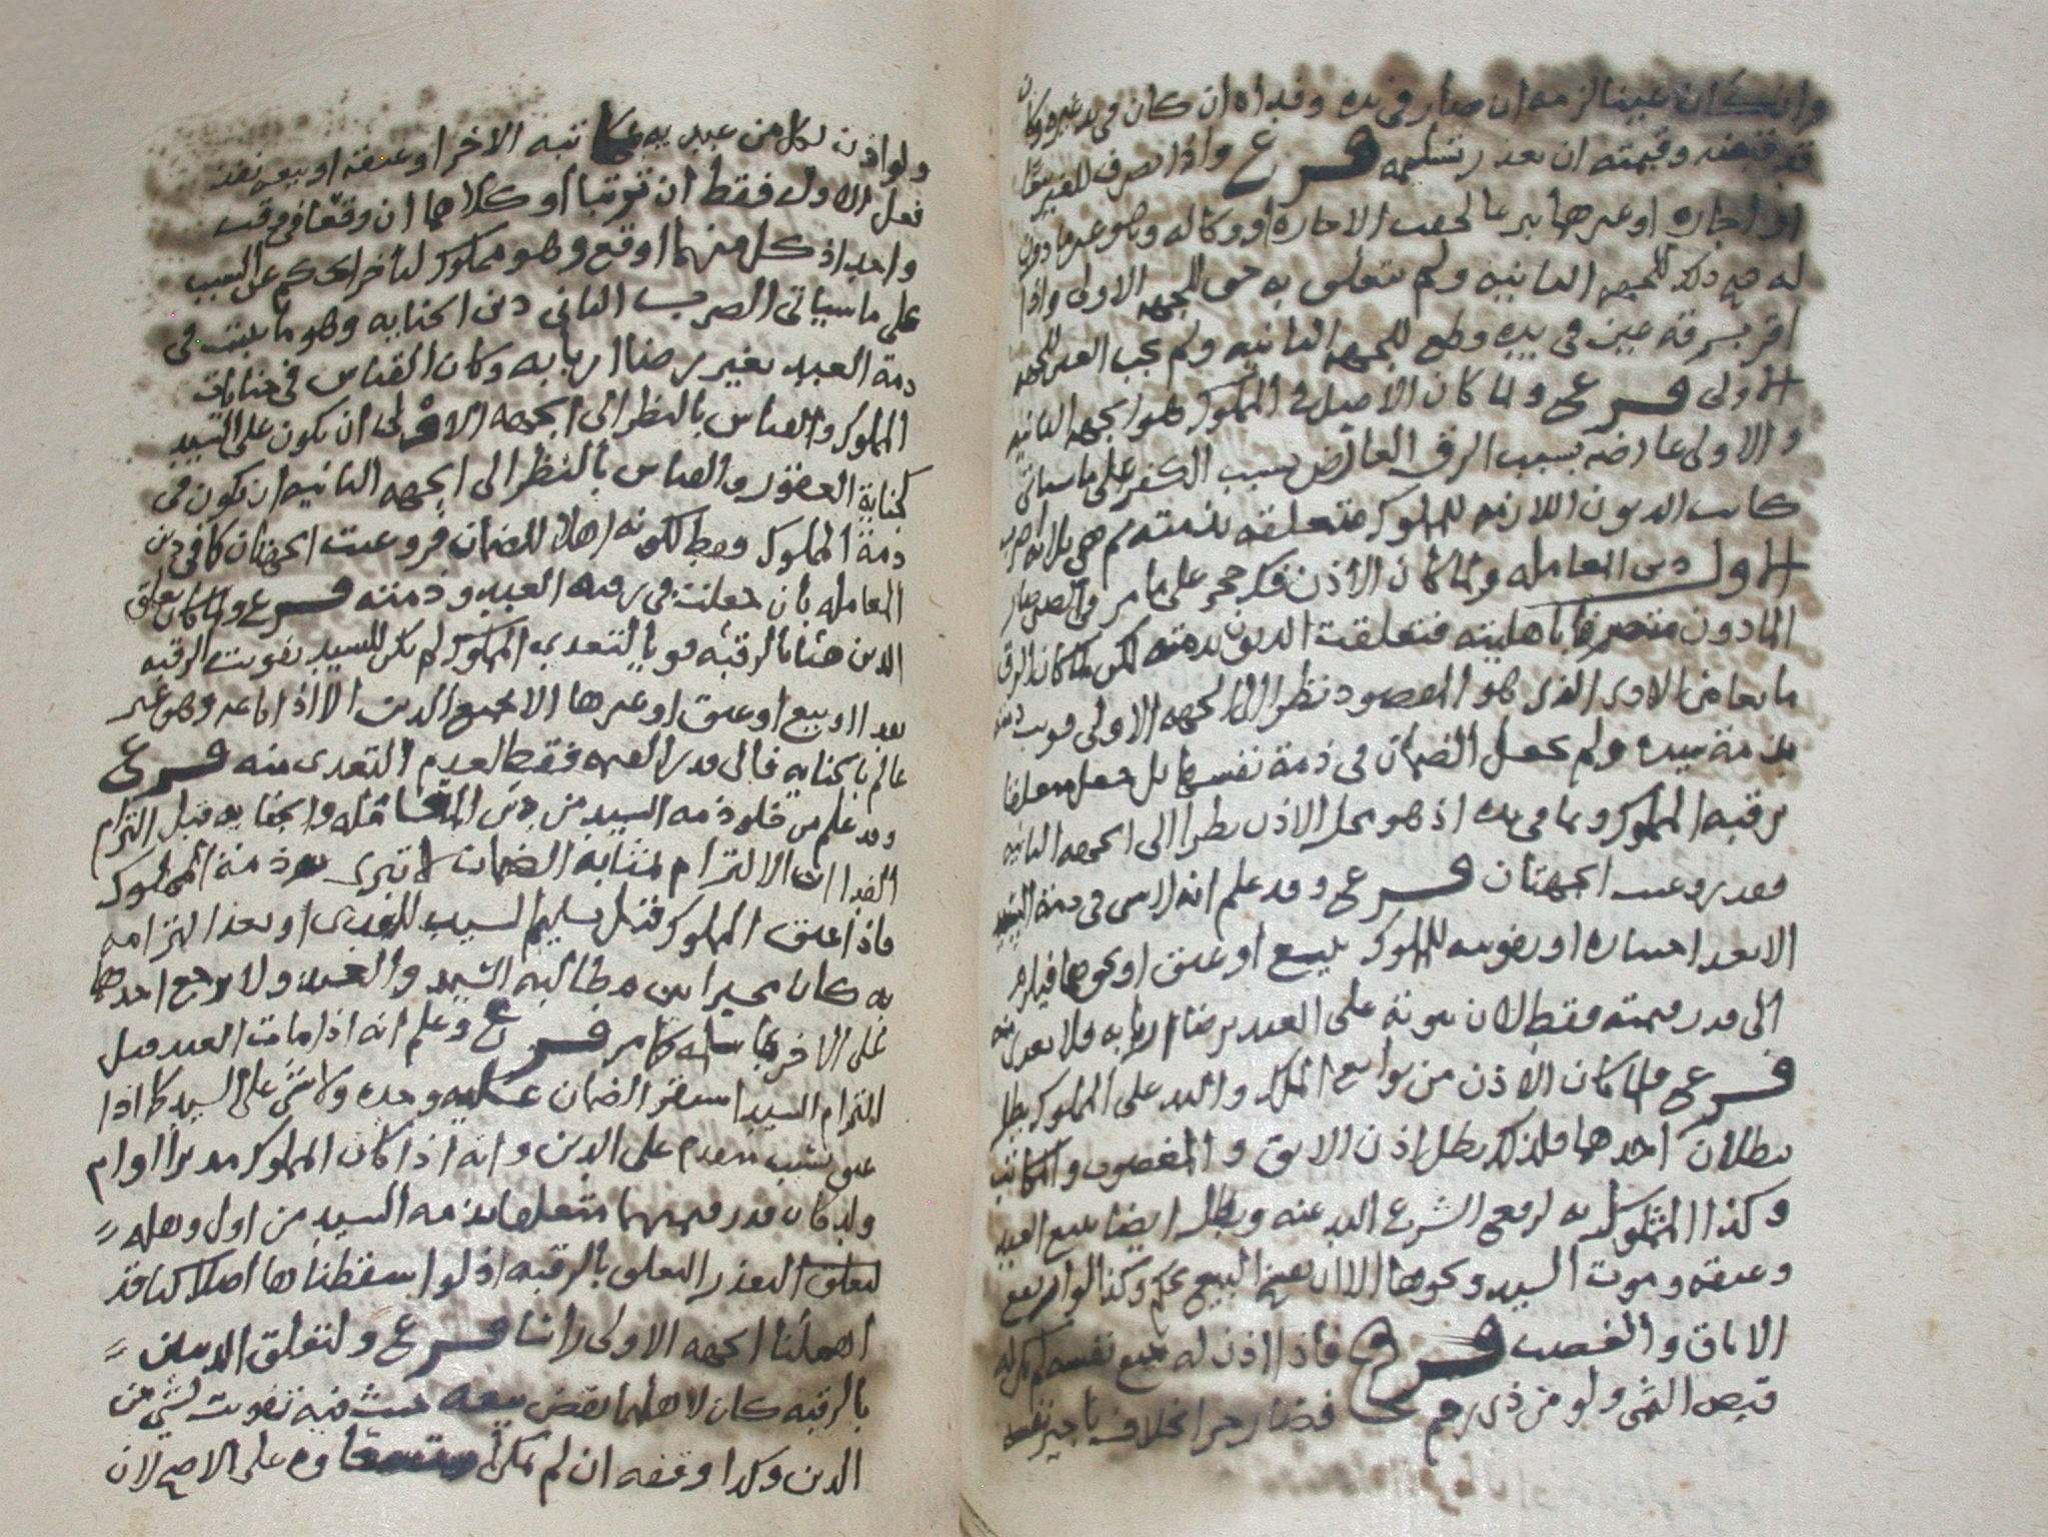 وان كان عينا لزمه ان صار في يده وفداه ان كان في يد غيره وكان
قد قبضه وقيمته ان تعذر تسليمه فرع واذا تصرف للغير بيعا
او اجاره او غيرها الاجاره او وكاله وهو غير ماذون
له صح ذلك للجهه الثانيه ولم يتعلق به حق للجهه الاولى واذا
اقر بسرقة عين في يده وطع للجهه الثانيه ولم يجب العين للجهه
الاولى فرع ولما كان الاصل في المملوك هو الجهه الثانيه
والاولى عارضه بسبب الرق العارض بسبب الكفر على ما سياتي
كانت الديون اللازمه للمملوك متعلقه بذمته ثم هي ثلاثه اضرب
الاول دين المعامله ولما كان الاذن فك حجر على ما مر في الصبي صار
الماذون متصرفا باهليته فتعلقت الديون بذمته لكن لما كان الرق
مانعا من الادى الذي هو المقصود نظرا الى الجهه الاولى
بذمة سيده ولم يجعل الضمان في ذمة نفسها بل جعل معلقا
برقبه المملوك وبما في يده اذ هو محل الاذن نظرا الى الجهه الثانيه
فقد روعيت الجهتان فرع وقد علم انه لا شي في ذمة السيد
الا بعد اختياره او تفويته للمملوك ببيع او عتق او نحوها فيلزم
الى قدر قيمته فقط لان ثبوته على العبد برضا اربابه فلا تعدى منه
فرع ولما كان الاذن من توابع الملك واليد على المملوك بطل
ببطلان احدهما فلذلك بطل اذن الابق والمغصوب والمكاتب
وكذا الممثول به لرفع الشرع اليد عنه وبطل ايضا ببيع العبد
وعتقه وموت السيد ونحوها الا ان البيع وكذا لو ارتفع
الاباق والغصب فرع فاذا اذن له ببيع نفسه لم يكن له
قبض الثمن ولو من ذي رحم فصار حرا بخلاف تاجير نفسه
ولو اذن لكل من عبديه مكاتبه الاخر او عتقه او بيعه نفذ
فعل الاول فقط ان ترتبا او كلاهما ان وقعا في وقت
واحد اذ كل منهما اوقع وهو مملوك لتاخر الحكم عن السبب
على ما سياتي الضرب الثاني دين الجنايه وهو ما يثبت في
ذمة العبد بغير رضا اربابه وكان القياس في جنايات
المملوك والقياس بالنظر الى الجهه الاولى ان يكون على السيد
كجناية العضو والقياس بالنظر الى الجهه الثانيه ان يكون في
ذمة المملوك فقط لكونه اهلا للضمان فروعيت الجهتان كما في دين
المعامله بان جعلت في رقبه العبد وذمته فرع ولما كان تعلق
الدين هنا بالرقبه قويا لتعدي المملوك لم يكن للسيد تفويت الرقبه
بعد او بيع او عتق او غيرها الا بجميع الدين الا اذا باعه وهو غير
عالم بالجنايه فالى قدر القيمه فقط لعدم التعدى منه فرع
وقد علم من خلو ذمه السيد من دين المعامله والجنايه قبل التزام
الفدا ان الالتزام بمثابة الضمان لا تبرى به ذمة المملوك
فاذا عتق المملوك قبل تسليم السيد للفدى او بعد التزامه
به كان مخيرا بين مطالبه السيد والعبد ولا يرجع احدهما
على الاخر بما سلمه كما مر فرع وعلم انه اذا مات العبد قبل
التزام السيد استقر الضمان عليه وحده ولا شي على السيد كما اذا
عتق بسبب متقدم على الدين وانه اذا كان المملوك مدبرا او ام
ولد كان قدر قيمتهما متعلقا بذمه السيد من اول وهله
لتعلق التعذر التعلق بالرقبه اذ لو اسقطناها اصلا لكنا قد
اهملنا الجهه الاولى راسا فرع ولتعلق الدينين
بالرقبه كان لاهلهما نقض بيعه حيث فيه تفويت لشي من
الدين وكذا وقفه ان لم يكن على الاصح لان